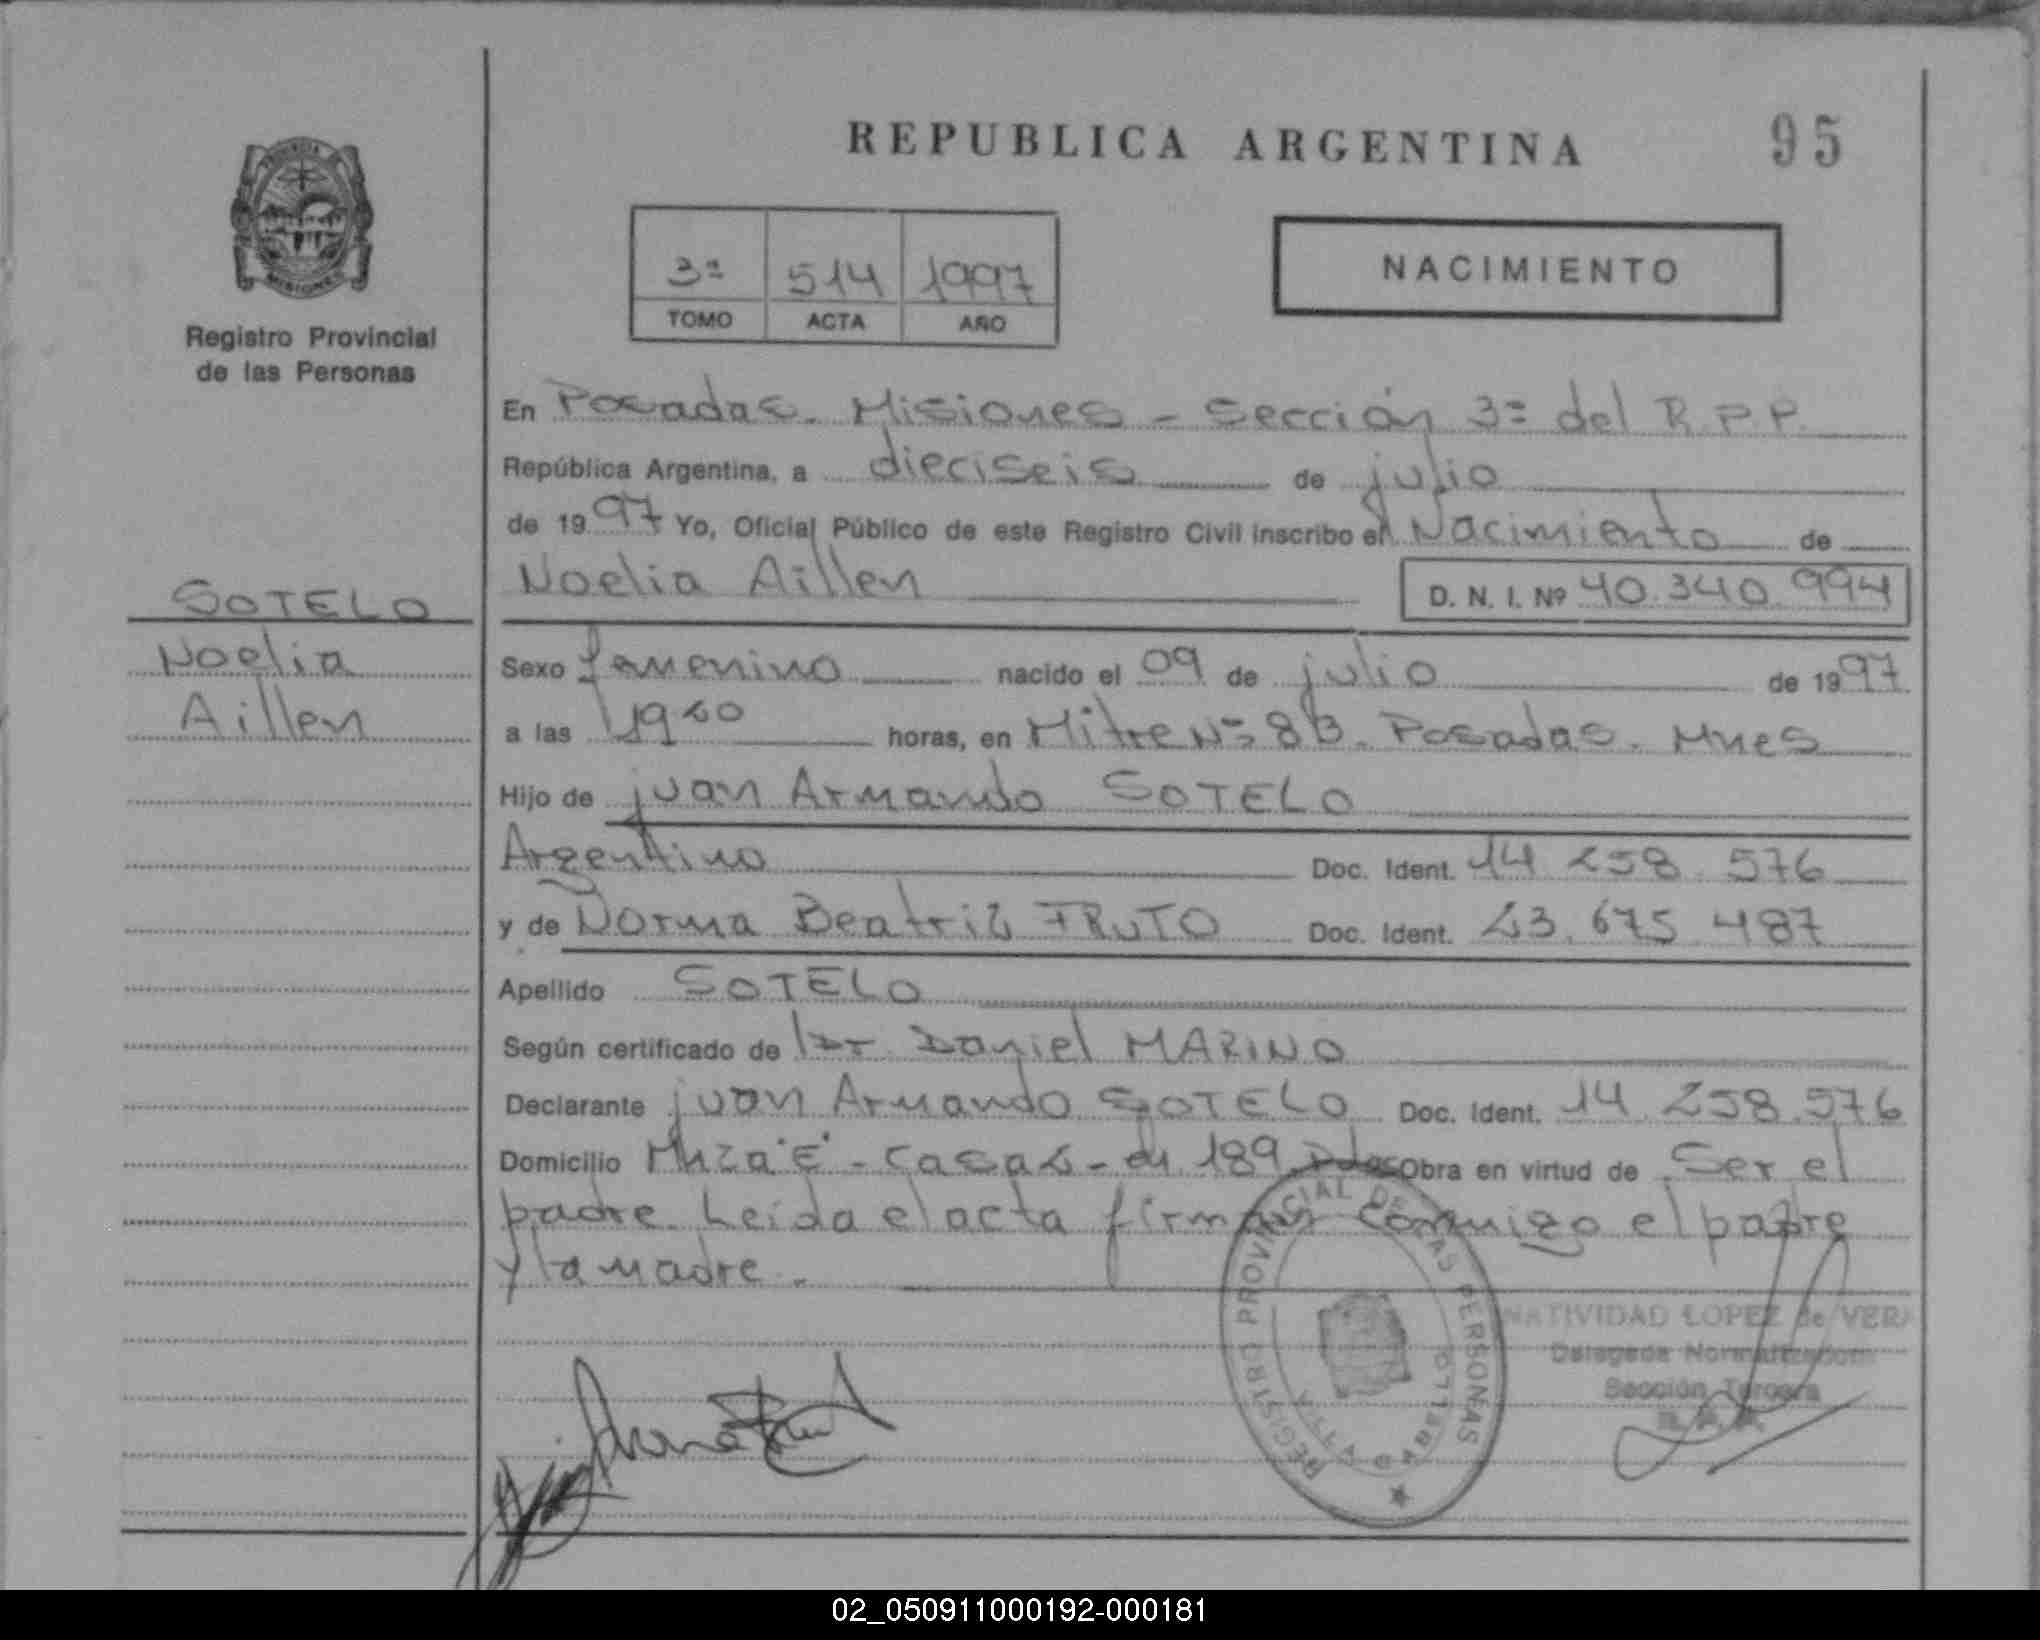 REPUBLICA ARGENTINA
95
3ª 514 1997
TOMO ACTA AÑO
NACIMIENTO
Registro Provincial
de las Personas
En Posadas. Misiones - Sección 3ª del R.P.P.
República Argentina, a dieciseis de julio
de 1997 Yo, Oficial Público de este Registro Civil inscribo el Nacimiento de
Noelia Aillen D. N. I. Nº 40.340.994
SOTELO
Noelia
Aillen
Sexo femenino nacido el 09 de julio de 1997
a las horas, en Mitre Nº 83. Posadas. Mnes
Hijo de Juan Armando SOTELO
Argentino Doc. Ident. 14 258.576
y de Norma Beatriz FRUTO Doc. Ident. 23.675.487
Apellido SOTELO
Según certificado de Dr Daniel MARINO
Declarante Juan Armando SOTELO Doc. Ident. 14.258.576
Domicilio Mnza "E" - Casa 2 - ch 189 Pdas Obra en virtud de Ser el
padre. Leída el acta firman conmigo el padre
y la madre.
REGISTRO PROVINCIAL DE LAS PERSONAS
VILLA CABELLO
NATIVIDAD LOPEZ de VERA
Delegada Normalizadora
Sección Tercera
02_050911000192-000181